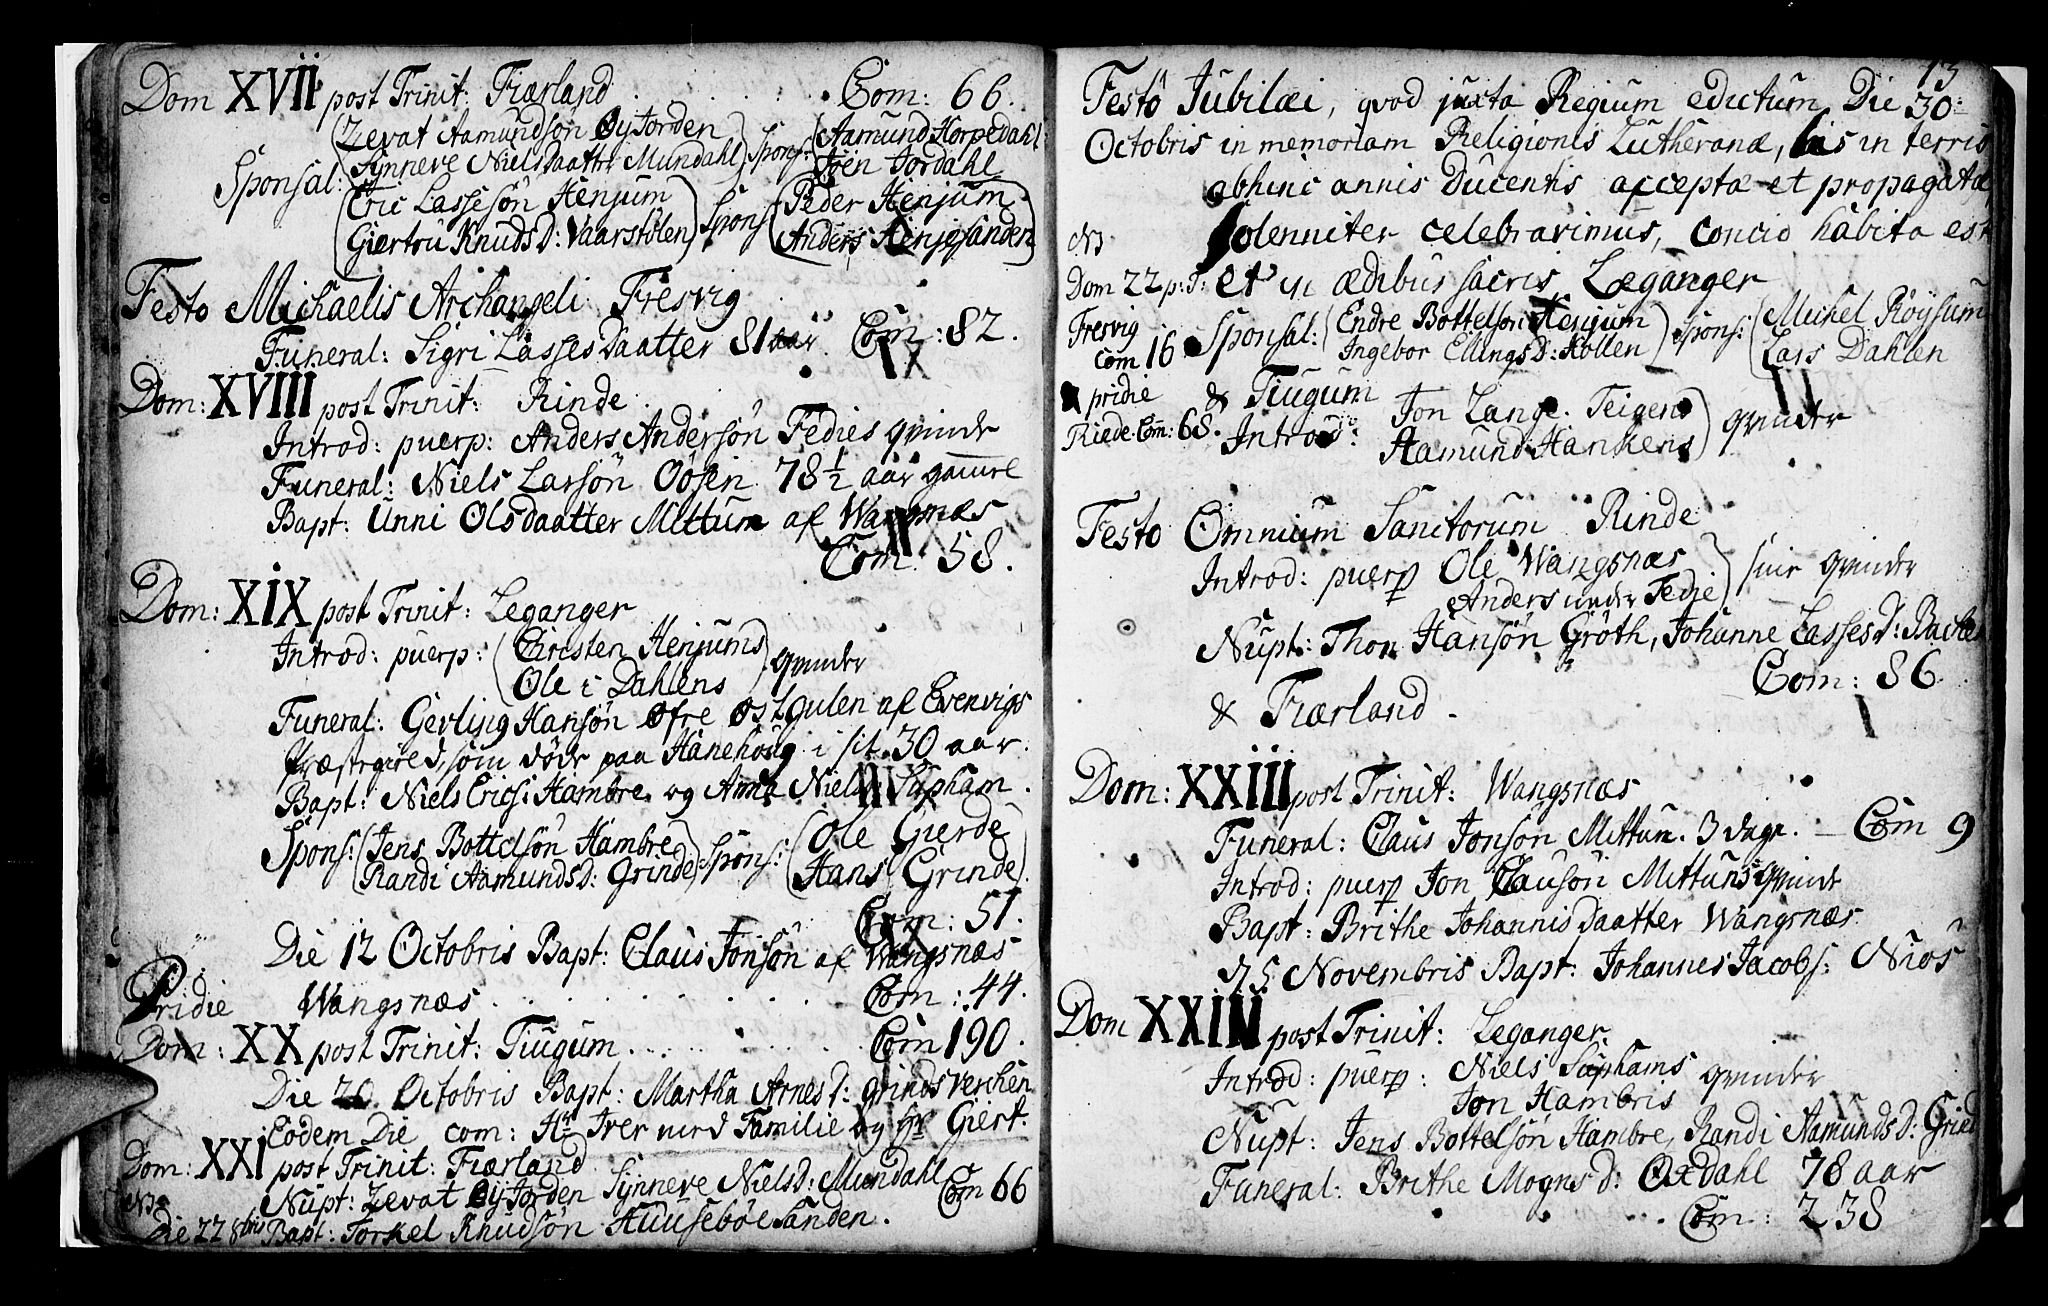 Dom XVII post Trinit: Fiærland . . . . . . Com: 66.
Zevat Aamundson Øyjorden Aamund Horpedahl
Sponsal: Synneve Nielsdaatter Mundahl Spons: Joen Jordahl
Eric Lassesön Henjum Spons: Peder Henjum
Giertru Knudsd: Vaarstölen Anders Henjesanden
Festo Michaelis Archangeli Fresvig
Funeral: Sigri Lassesdaatter 81 aar. Com: 82.
Dom: XVIII post Trinit: Rinde.
Introd: puerp: Anders Andersön Fedies qvinde
Funeral: Niels Larsön Oösen 78½ aar gamle
Bapt: Unni Olsdaatter Mittum af Wangsnæs
Com: 58.
Dom: XIX post Trinit: Leganger
Introd: puerp: Cirsten Henjums qvinder
Ole i Dahlens
Funeral: Gevling Hansön Øfre Østgulen af Evenvigs
Præstegield, som döde paa Hanehoug i sit 30 aar.
Bapt: Niels Erics: Hambre og Anna Nielsd: Supham.
Spons: Jens Bottelsön Hambre Spons: Ole Gierde
Randi Aamundsd: Grinde Hans Grinde
Com: 51.
Die 12 Octobris Bapt: Claus Jonsön af Wangsnæs
Pridie Wangsnæs . . . . . . Com: 44.
Dom: XX post Trinit: Tiugum . . . . . . Com 190.
Die 20 Octobris Bapt: Martha Arnesd: Grindsverchen
Eodem Die com: Hr Iver med Familie og Hr Giert.
Dom: XXI post Trinit: Fiærland
Nupt: Zevat Øyjorden Synneve Nielsd: Mundahl Com 66
NB
Die 22 8bris Bapt: Torkel Knudsön Huusebøesanden.
13
Festo Jubilæi, qvod juxta Regium edictum Die 30:
Octobris in memoriam Religionis Lutheranæ, his in terris
abhinc annis Ducentis acceptæ et propagatæ,
NB solenniter celebravimus, concio habita est
Dom 22 p: T: et in ædibus sacris Leganger
Fresvig Sponsal: Endre Bottelson Henjum Spons: Michel Röysum
Com 16 Ingebor Ellingsd: Hollen Lars Dahlen
pridie & Tiugum
Riede Com: 68. Introd: Jon Lange Teigens qvinder
Aamund Hankens
Festo Omnium Sanctorum Rinde
Introd: puerp Ole Wangsnæs sine qvinder
Anders under Fedie
Nupt: Thon Hansön Gröth, Johanne Lassesd: Backe
Com: 86
& Fiærland.
Dom: XXIII post Trinit: Wangsnæs
Funeral: Claus Jonsön Mittum. 3 dage. — Com 9
Introd: puerp Jon Clausön Mittums qvinde
Bapt: Brithe Johannisdaatter Wangsnæs
d 5 Novembris Bapt: Johannes Jacobs: Niös
Dom XXIIII post Trinit: Leganger.
Introd: puerp: Niels Suphams qvinder
Jon Hambris
Nupt: Jens Bottelsön Hambre, Randi Aamundsd: Grind
Funeral: Brithe Mognsd: Oxdahl 78 aar
Com: 238